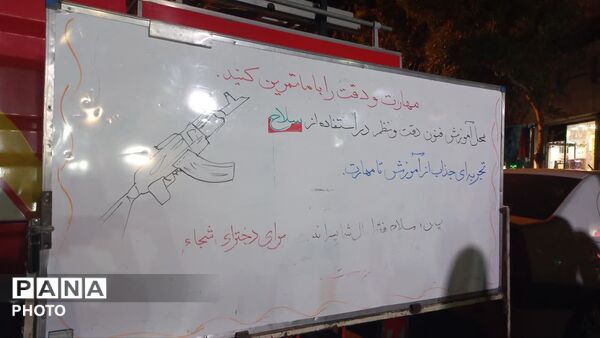 مهارت و دقت را با ما تمرین کنید.
محل آموزش فنون دقت و نظر در استفاده از سلاح
تجربه‌ای جذاب از آموزش تا مهارت.
برای دخترای شجاع
PANA
PHOTO